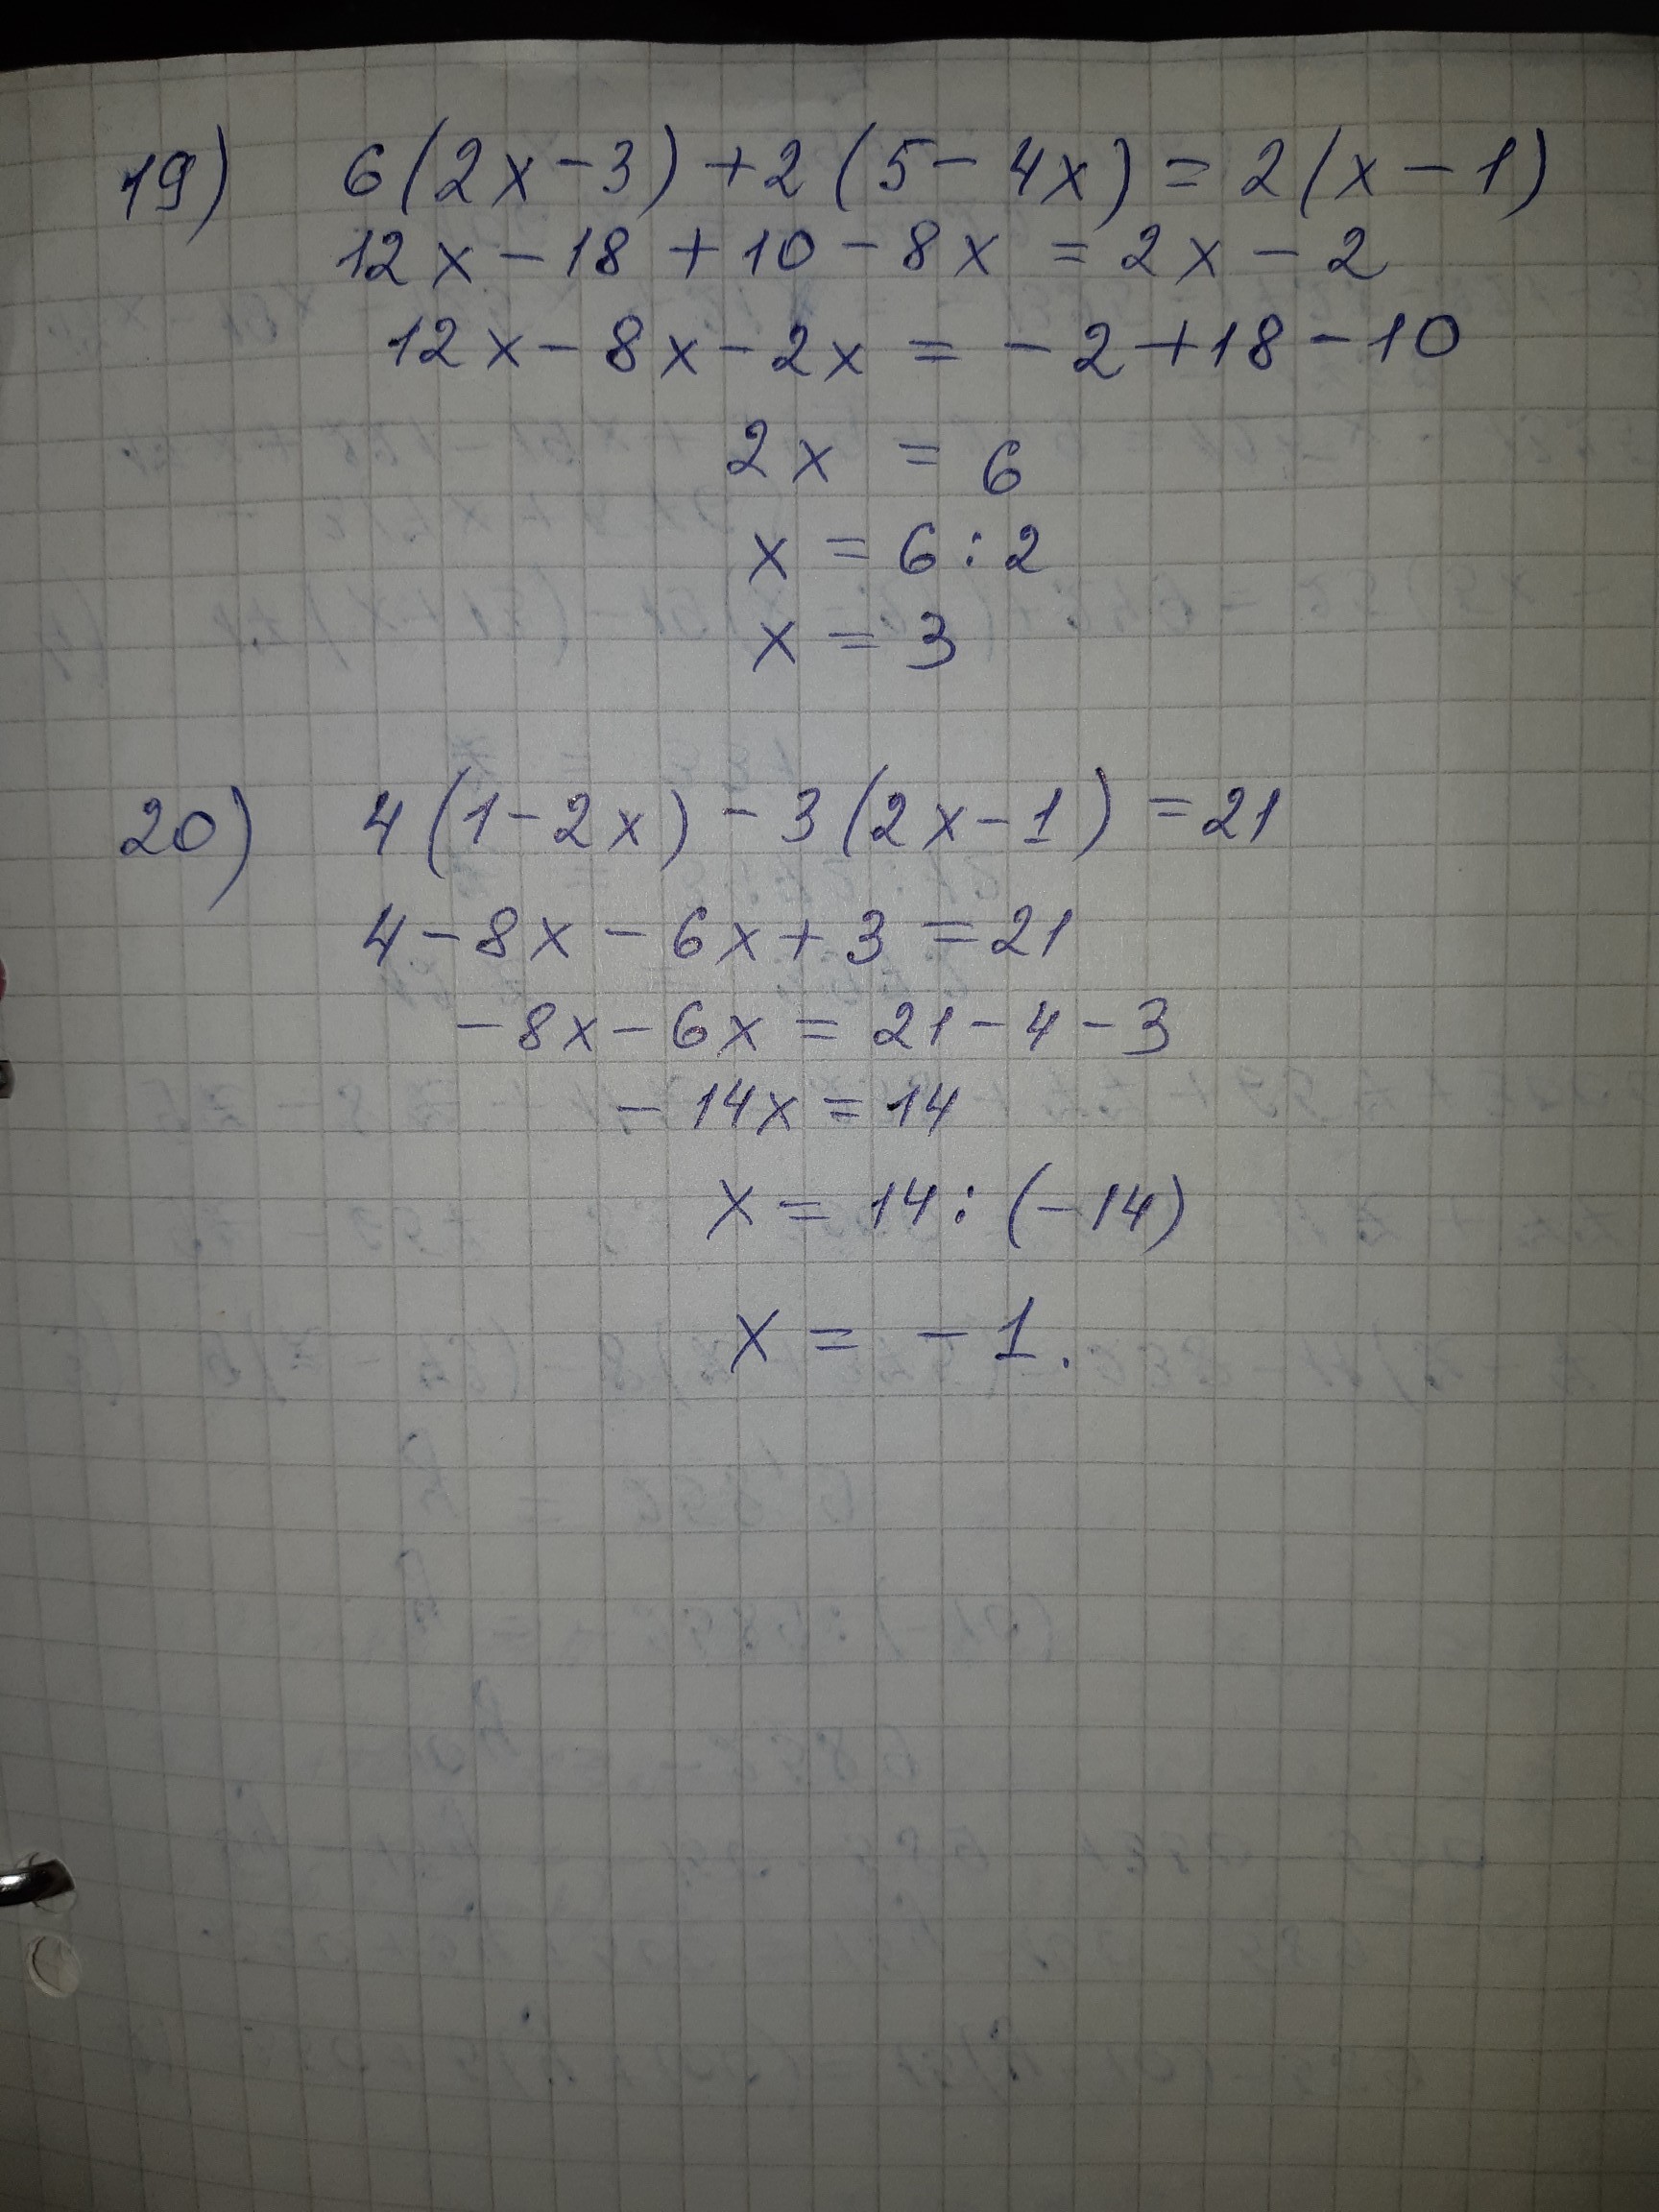 19) 6(2x-3)+2(5-4x)=2(x-1)
12x-18+10-8x=2x-2
12x-8x-2x=-2+18-10
2x=6
x=6:2
x=3
20) 4(1-2x)-3(2x-1)=21
4-8x-6x+3=21
-8x-6x=21-4-3
-14x=14
x=14:(-14)
x=-1.